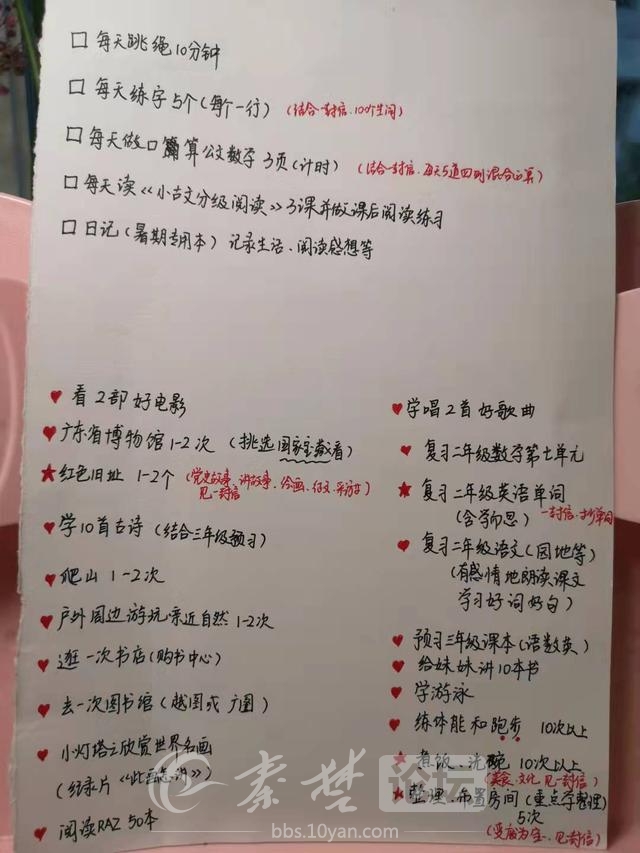 □ 每天跳绳10分钟
□ 每天练字5个(每个一行) (结合一封信.100个生词)
□ 每天做口算公文数学3页(计时) (结合一封信.每天5道四则混合运算)
□ 每天读《小古文分级阅读》3课并做课后阅读练习
□ 日记(暑期专用本) 记录生活、阅读感想等
♥ 看2部好电影
♥ 广东省博物馆1-2次 (挑选国家宝藏看)
★ 红色旧址 1-2个 (党史故事、讲故事、绘画、征文、采访)
见一封信
♥ 学10首古诗(结合三年级预习)
♥ 爬山 1-2次
♥ 户外周边游玩亲近自然 1-2次
♥ 逛一次书店(购书中心)
♥ 去一次图书馆(越图或广图)
♥ 小灯塔之欣赏世界名画
(纪录片《此画怎讲》)
♥ 阅读RAZ 50本
♥ 学唱2首好歌曲
♥ 复习二年级数学第七单元
★ 复习二年级英语单词
(含学而思) 一封信.抄单词
♥ 复习二年级语文(园地等)
(有感情地朗读课文
学习好词好句)
♥ 预习三年级课本(语数英)
♥ 给妹妹讲10本书
♥ 学游泳
♥ 练体能和跑步 10次以上
★ 煮饭、洗碗 10次以上
(美食、文化、见一封信)
★ 整理、布置房间(重点学整理)
5次
(变废为宝、见一封信)
秦楚论坛
bbs.10yan.com